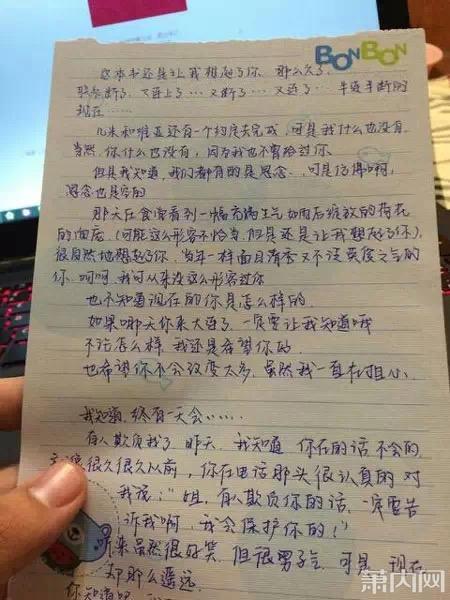 BONBON
这本书还是让我想起了你. 那么久了.
联系断了. 又连上了… 又断了… 又连了… 半连半断的
现在……
几米和谁还有一个约定去完成, 可是我什么也没有.
当然, 你什么也没有, 因为我也不曾给过你.
但是我知道, 我们都有的是思念, 可是伤得啊,
思念也是空的
那天在食堂看到一幅充满生气如雨后绽放的荷花
的面庞. (可能这么形容不恰当. 但是还是让我想起了你).
很自然地想起了你, 当年一样面目清秀又不该英俊之气的
你. 呵呵. 我可从来没这么形容过你
也不知道现在的你是怎么样的.
如果哪天你来大连了. 一定要让我知道哦
不论怎么样. 我还是希望你的.
也希望你不会改变太多. 虽然我一直在担心.
我知道, 终有一天会……
有人欺负我了. 昨天. 我知道 你在的话 不会的.
很久很久以前, 你在电话那头很认真的对
我说: "姐, 有人欺负你的话, 一定要告
诉我啊, 我会保护你的!"
听来虽然很好笑. 但很男子气. 可是. 现在
却那么遥远.
你知道吧
萧内网